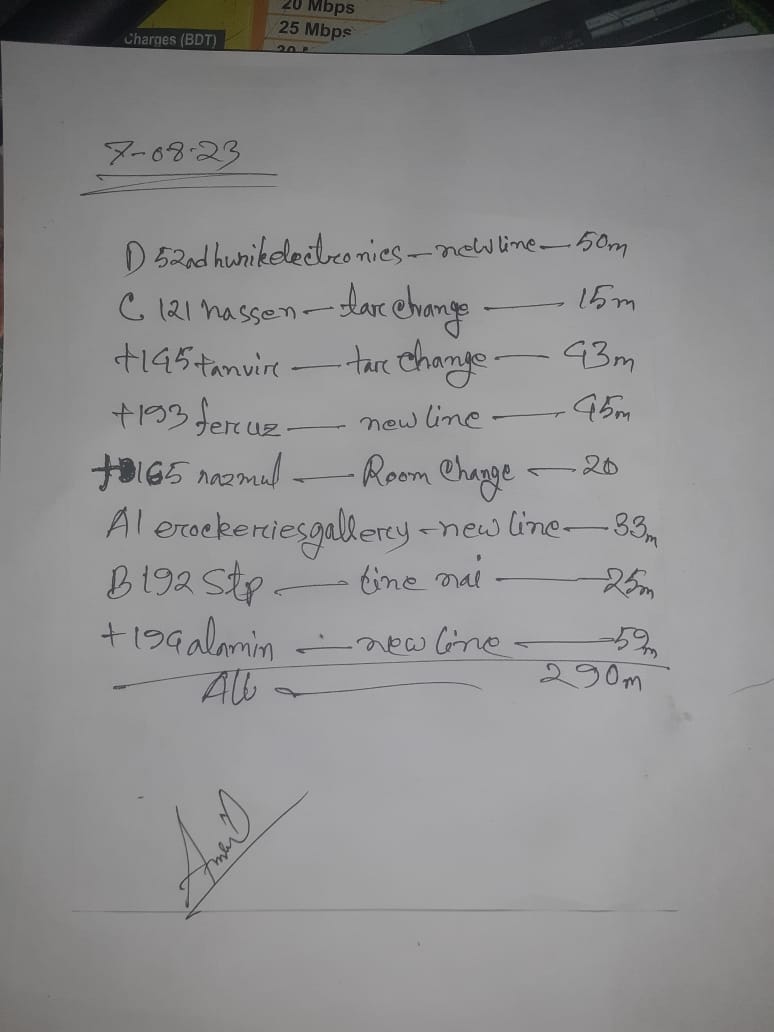 20 Mbps
Charges (BDT) 25 Mbps
7-08-23
D 52 adhunikelectronics - newline - 50m
C 121 hassen - tar change - 15m
t145 tanvir - tar change - 43m
t193 feruz - new line - 45m
t 165 nazmul - Room Change - 20
A1 crockeriesgallery - new line - 33m
B192 Stp - line nai - 25m
t 194 alamin - new line - 59m
All - 290m